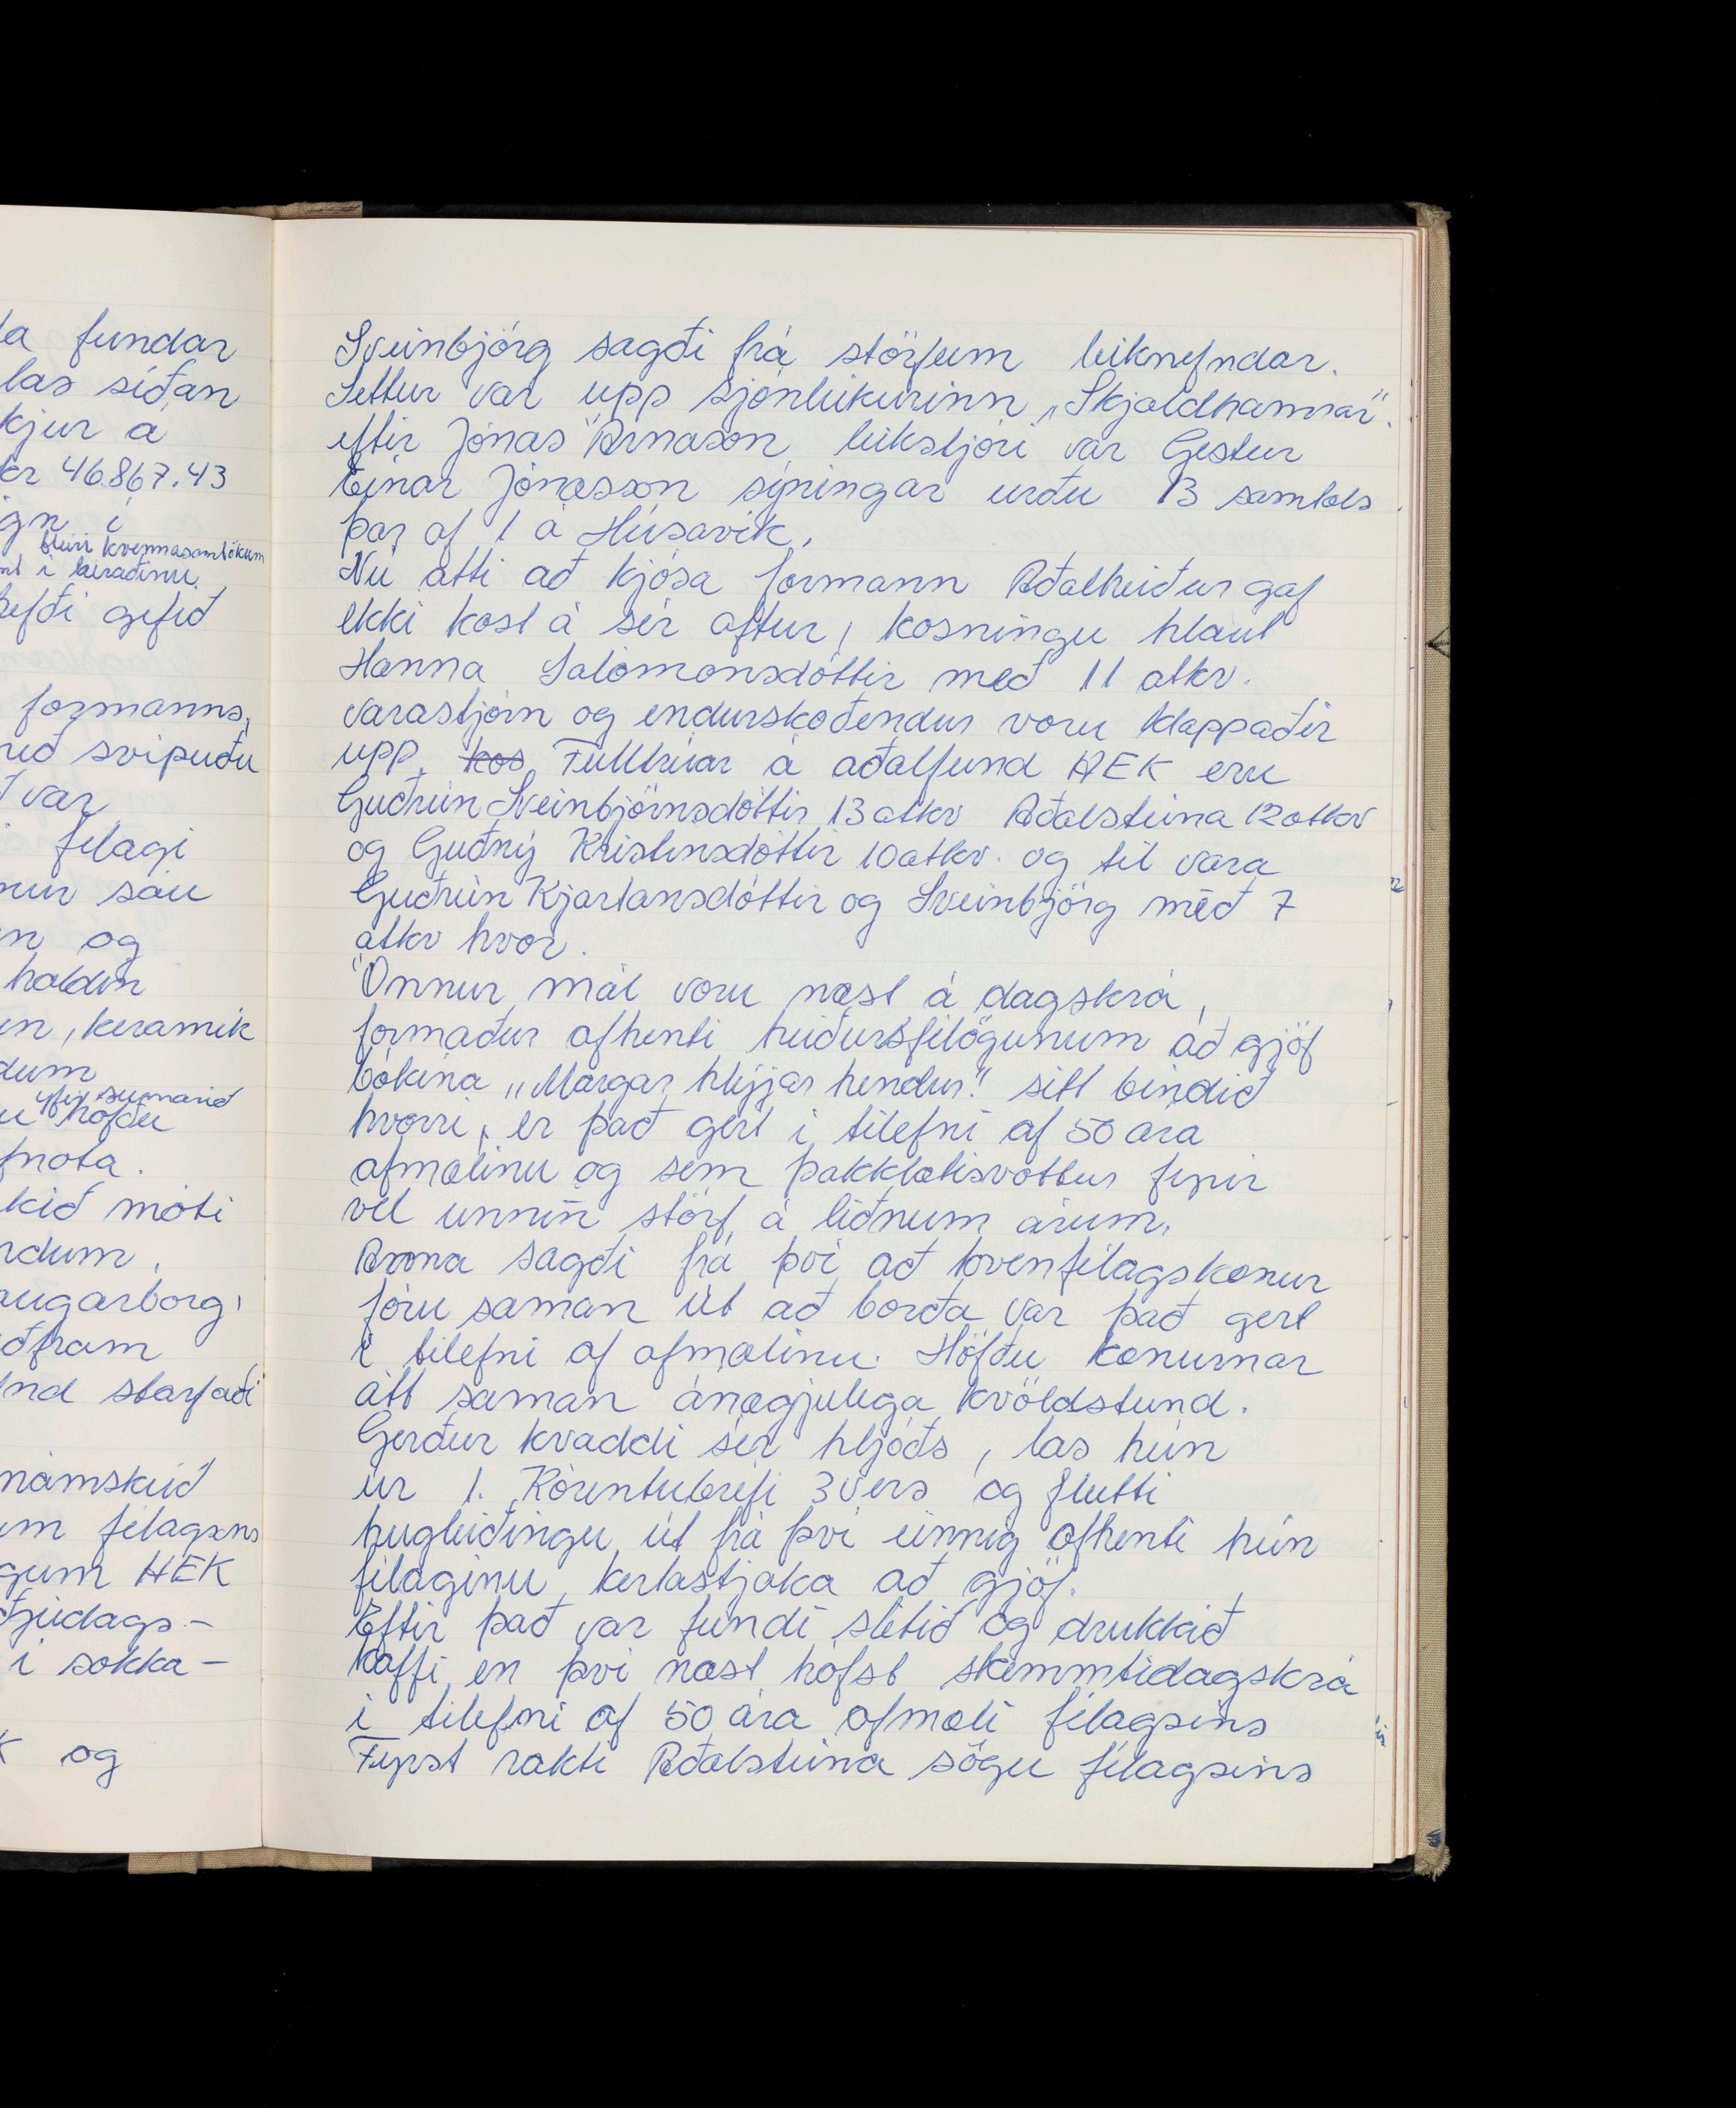 la fundar
las síðan
kjur á
kr 46.867.43
gn í
fleiri kvennasamtökum
í héraðinu
hefði gefið
formanns,
með svipuðu
var
félagi
nur sáu
n og
haldin
en, keramik
dum
yfir sumarið
u höfðu
fnota.
kið móti
ndum,
augarborg,
ðfram
nd starfaði
námskeið
um félagsins
gum HEK
ðjudags-
í sokka-
K og
Sveinbjörg sagði frá störfum leiknefndar.
Settur var upp sjónleikurinn „Skjaldhamrar".
eftir Jónas Árnason, leikstjóri var Gestur
Einar Jónasson sýningar urðu 13 samtals
þar af 1 á Húsavík.
Nú átti að kjósa formann Aðalheiður gaf
ekki kost á sér aftur, kosningu hlaut
Hanna Salómonsdóttir með 11 atkv.
varastjórn og endurskoðendur voru klappaðir
upp. kos Fulltrúar á aðalfund HEK eru
Guðrún Sveinbjörnsdóttir 13 atkv Aðalsteina 12 atkv
og Guðný Kristinsdóttir 10 atkv. og til vara
Guðrún Kjartansdóttir og Sveinbjörg með 7
atkv hvor.
Önnur mál voru næst á dagskrá,
formaður afhenti heiðursfélögunum að gjöf
bókina „Margar hlýjar hendur." sitt bindið
hvorri, er það gert í tilefni af 50 ára
afmælinu og sem þakklætisvottur fyrir
vel unnin störf á liðnum árum.
Anna sagði frá því að kvenfélagskonur
fóru saman út að borða var það gert
í tilefni af afmælinu. Höfðu konurnar
átt saman ánægjulega kvöldstund.
Gerður kvaddi sér hljóðs, las hún
úr 1. Korintubréfi 3 vers og flutti
hugleiðingu út frá því einnig afhenti hún
félaginu kertastjaka að gjöf.
Eftir það var fundi slitið og drukkið
kaffi en því næst hófst skemmtidagskrá
í tilefni af 50 ára afmæli félagsins
Fyrst rakti Aðalsteina sögu félagsins